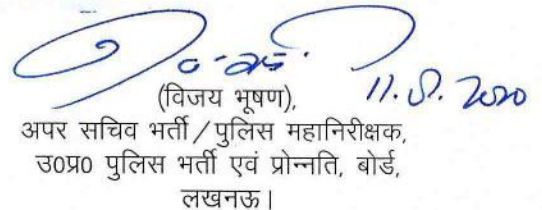 11.8.2020
(विजय भूषण),
अपर सचिव भर्ती/पुलिस महानिरीक्षक,
उ0प्र0 पुलिस भर्ती एवं प्रोन्नति, बोर्ड,
लखनऊ।